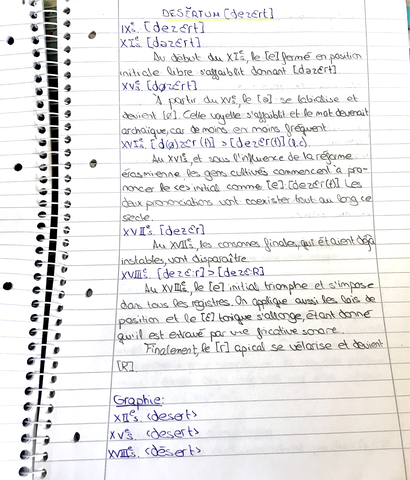 DESĒRTUM [dezért]
IXe s. [dezért]
XIe s. [dəzért]
Au début du XIe s, le [e] fermé en position
initiale libre s'affaiblit donnant [dəzért]
XVe s. [døzért]
A partir du XVe s, le [ə] se labialise et
devient [ø]. Cette voyelle s'affaiblit et le mot devenait
archaïque, car de moins en moins fréquent
XVIe s. [d(ø)zɛ́r(t)] > [dezɛ́r(t)] (g.c).
Au XVIe s, et sous l'influence de la réforme
érasmienne, les gens cultivés commencent à pro-
noncer le <e> initial comme [e]: [dezɛ́r(t)]. Les
deux prononciations vont coexister tout au long ce
siècle.
XVIIe s. [dezɛ́r]
Au XVIIe s, les consonnes finales, qui étaient déjà
instables, vont disparaître
XVIIIe s. [dezɛ́:r] > [dezɛ́:R]
Au XVIIIe s, le [e] initial triomphe et s'impose
dans tous les registres. On applique aussi les lois de
position et le [ɛ́] tonique s'allonge, étant donné
qu'il est entravé par une fricative sonore.
Finalement, le [r] apical se vélarise et devient
[R].
Graphie:
XIIe s. <desert>
XVe s. <desert>
XVIIIe s. <désert>